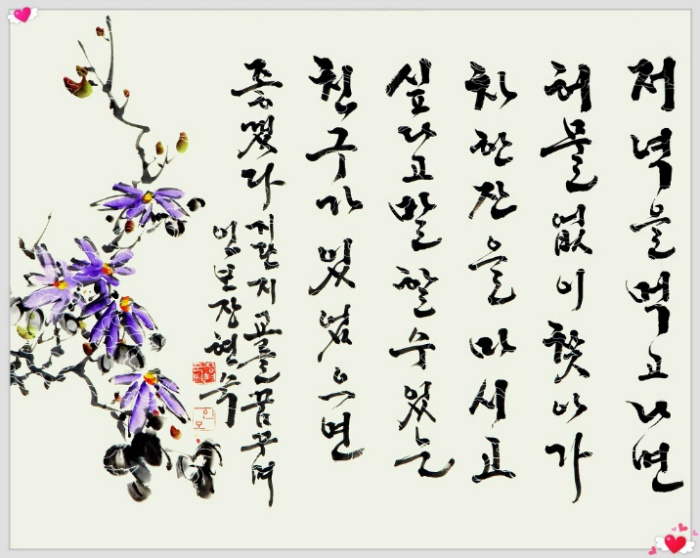 저녁을 먹고 나면
허물없이 찾아가
차 한잔을 마시고
싶다고 말할 수 있는
친구가 있었으면
좋겠다
지란지교를 꿈꾸며
인보 장현숙
인보